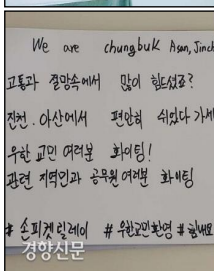 We are chungbuk Asan, Jinch
고통과 절망속에서 많이 힘드셨죠?
진천.아산에서 편안히 쉬었다 가세
우한 교민 여러분 화이팅!
관련 지역민과 공무원 여러분 화이팅
# 손피켓릴레이 # 우한교민환영 # 힘내요
경향신문